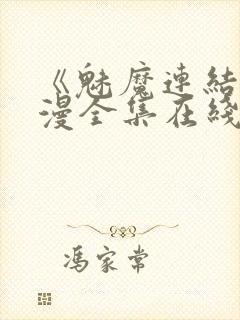 《魅魔連結
漫全集在綫
馮家常